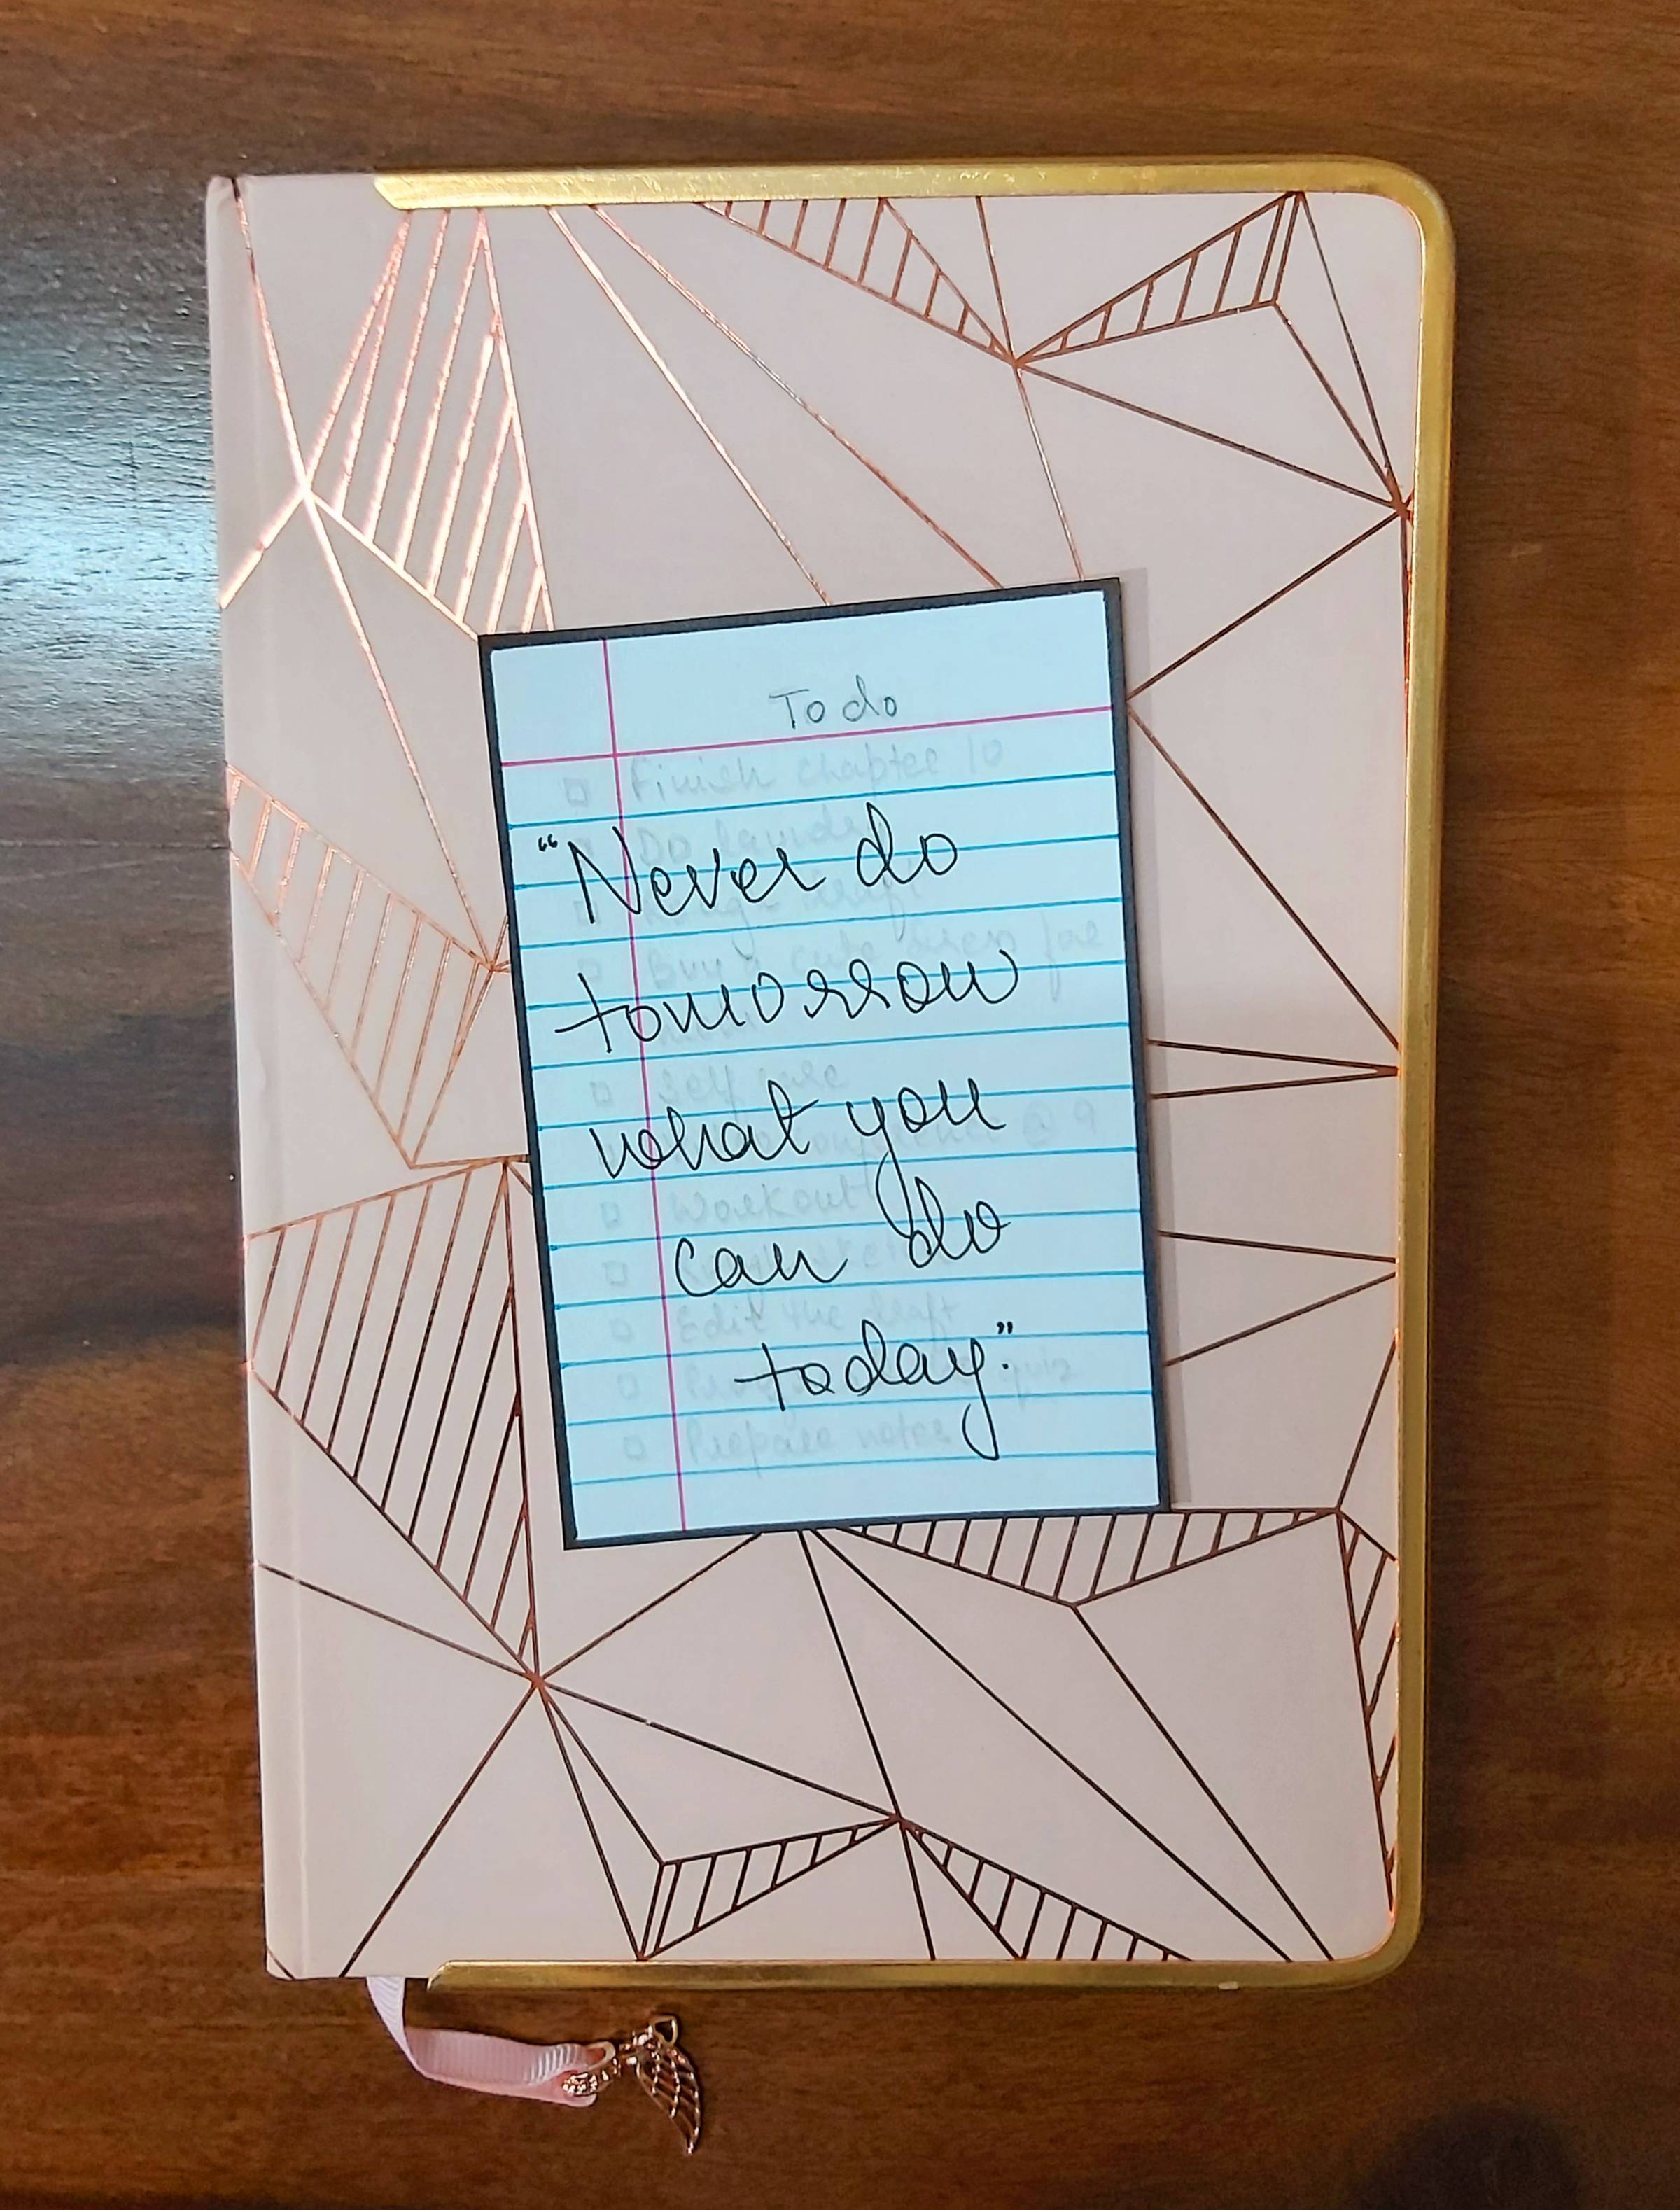 To do
Finish chapter 10
Do laundry
"Never do
Buy a cute for
tomorrow
Self care
what you
@ 9
Workout
can do
Edit the draft
today."
quiz
Prepare notes